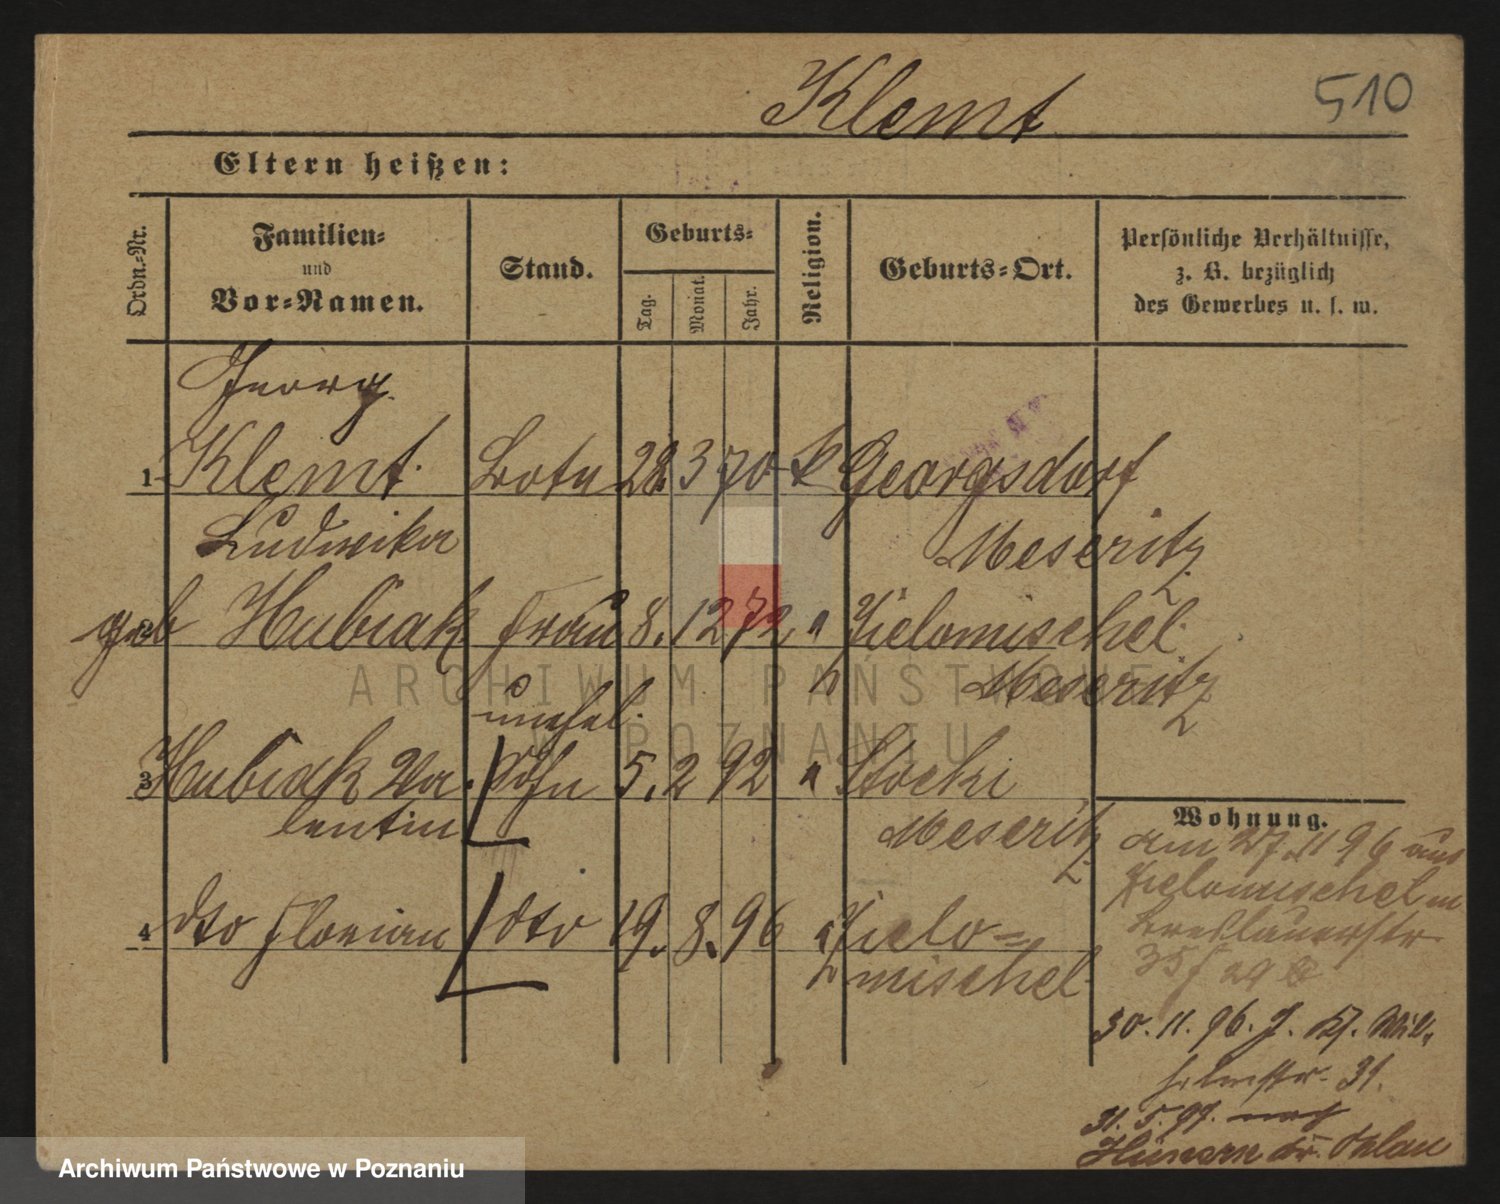 Klemt 510
Eltern heißen:
Ordn.-Nr. Familien- und Vor-Namen. Stand. Geburts- Tag. Monat. Jahr. Religion. Geburts-Ort. Persönliche Verhältnisse, z. B. bezüglich des Gewerbes u. s. w.
Georg
1 Klemt Bote 28. 3 70 k Georgsdorf
Ludwika Meseritz
geb Hubiak Frau 8. 12 72 " Zielomischel
Meseritz
unehel.
3 Hubiak Va- Sohn 5. 2 92 " Stocki
lentin Meseritz
4 dto Florian dto 19. 8. 96 Zielo-
mischel
Wohnung.
am 27. 11 96 aus
Zielomischel in
Breslauerstr
35
30. 11. 96. J. Wil-
helmstr. 31.
31. 5. 97. nach
Hünern Kr. Ohlau
ARCHIWUM PAŃSTWOWE
W POZNANIU
Archiwum Państwowe w Poznaniu